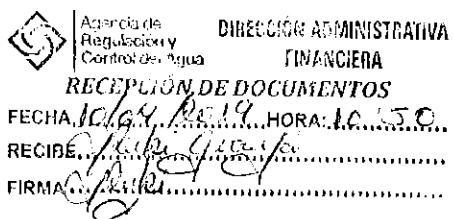 Agencia de
Regulación y
Control del Agua
DIRECCIÓN ADMINISTRATIVA
FINANCIERA
RECEPCIÓN DE DOCUMENTOS
FECHA 10/04/2019 HORA: 10:50
RECIBE
FIRMA